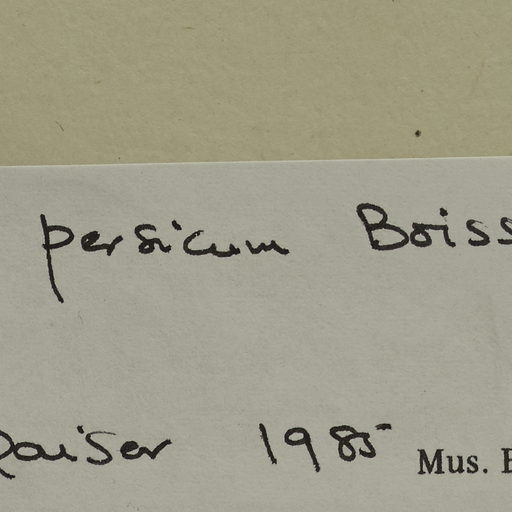 persicum Boiss
Qaiser 1985 Mus. B